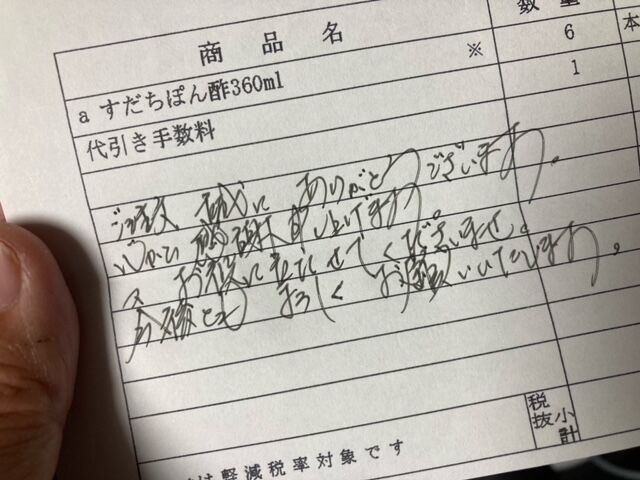 商品名 数量
a すだちぽん酢360ml ※ 6 本
代引き手数料 1
ご注文 誠に ありがとうございます。
心から 感謝申し上げます
又 お役に立たせてくださいませ。
今後とも よろしく お願いいたします。
税抜 小計
は軽減税率対象です